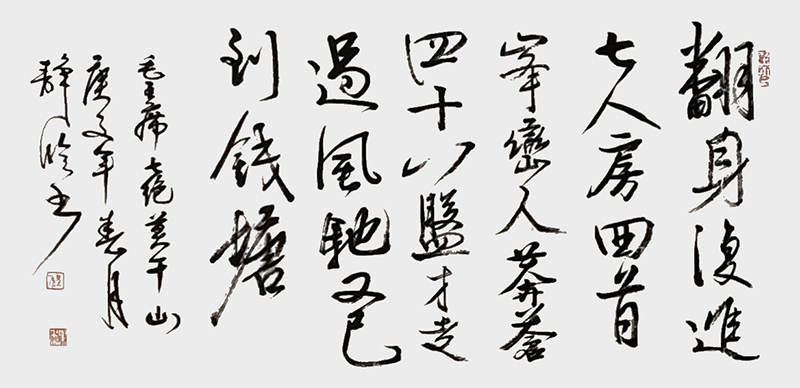 翻身復進
七人房回首
峯巒入莽蒼
四十八盤才走
過風馳又已
到錢塘
毛主席七绝莫干山
庚年春月
靜书